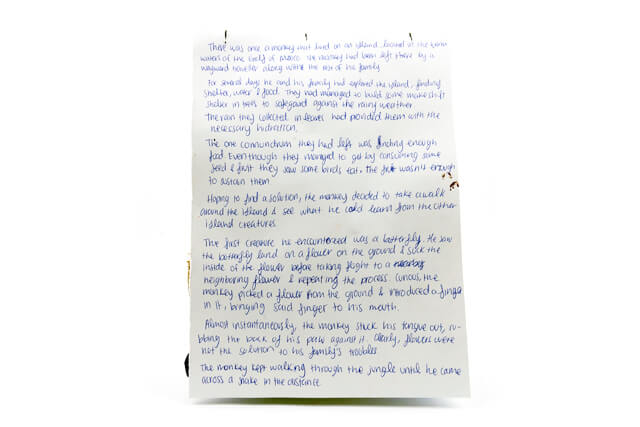 There was once a monkey that lived on an island located in the warm
waters of the Gulf of Mexico. The monkey had been left there by a
wayward traveller along with the rest of his family.
For several days he and his family had explored the island, finding
shelter, water & food. They had managed to build some makeshift
shelter in trees to safeguard against the rainy weather
The rain they collected in leaves had provided them with the
necessary hidration.
The one conundrum they had left was finding enough
food. Even though they managed to get by consuming some
seed & fruit they saw some birds eat, the fruit wasn't enough
to sustain them
Hoping to find a solution, the monkey decided to take a walk
around the island & see what he could learn from the other
island creatures.
The first creature he encountered was a butterfly. He saw
the butterfly land on a flower on the ground & suck the
inside of the flower before taking flight to a
neighboring flower & repeating the process. Curious, the
monkey picked a flower from the ground & introduced a finger
in it, bringing said finger to his mouth.
Almost instantaneously, the monkey stuck his tongue out, ru-
bbing the back of his paw against it. Clearly, flowers were
not the solution to his family's troubles
The monkey kept walking through the jungle until he came
across a snake in the distance.